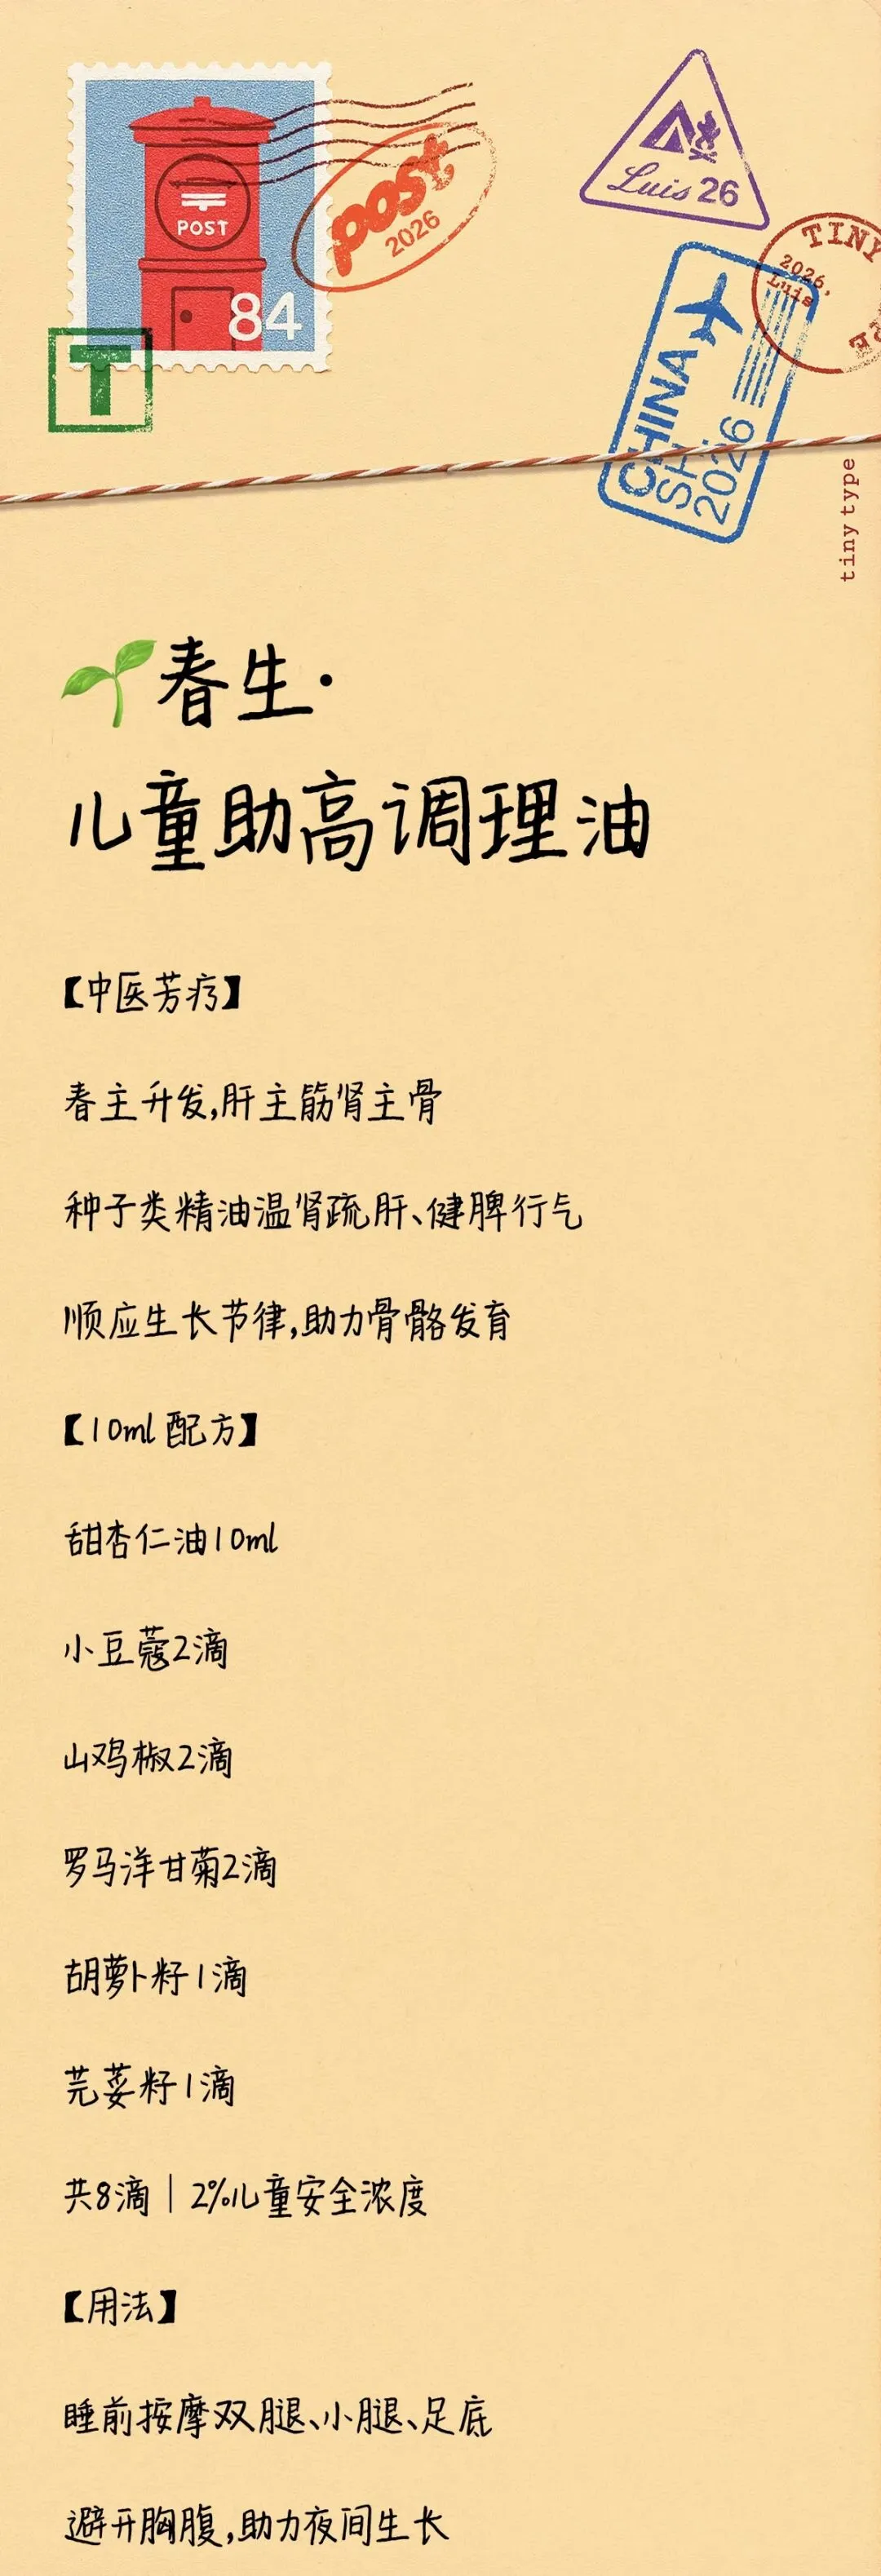 POST
84
post
2026
T
Luis 26
TINY
2026,
Luis
CHINA
2026
tiny type
🌱春生·
儿童助高调理油
【中医芳疗】
春主升发,肝主筋肾主骨
种子类精油温肾疏肝、健脾行气
顺应生长节律,助力骨骼发育
【10ml配方】
甜杏仁油10ml
小豆蔻2滴
山鸡椒2滴
罗马洋甘菊2滴
胡萝卜籽1滴
芫荽籽1滴
共8滴｜2%儿童安全浓度
【用法】
睡前按摩双腿、小腿、足底
避开胸腹,助力夜间生长